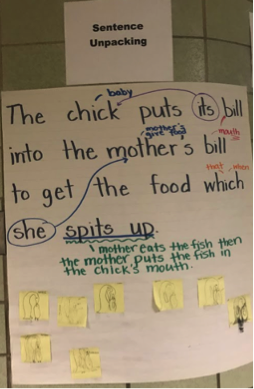 Sentence
Unpacking
baby
The chick puts its bill
mouth
mother's
into the mother's bill
that when
to get the food which
she spits up.
mother eats the fish then
the mother puts the fish in
the chick's mouth.